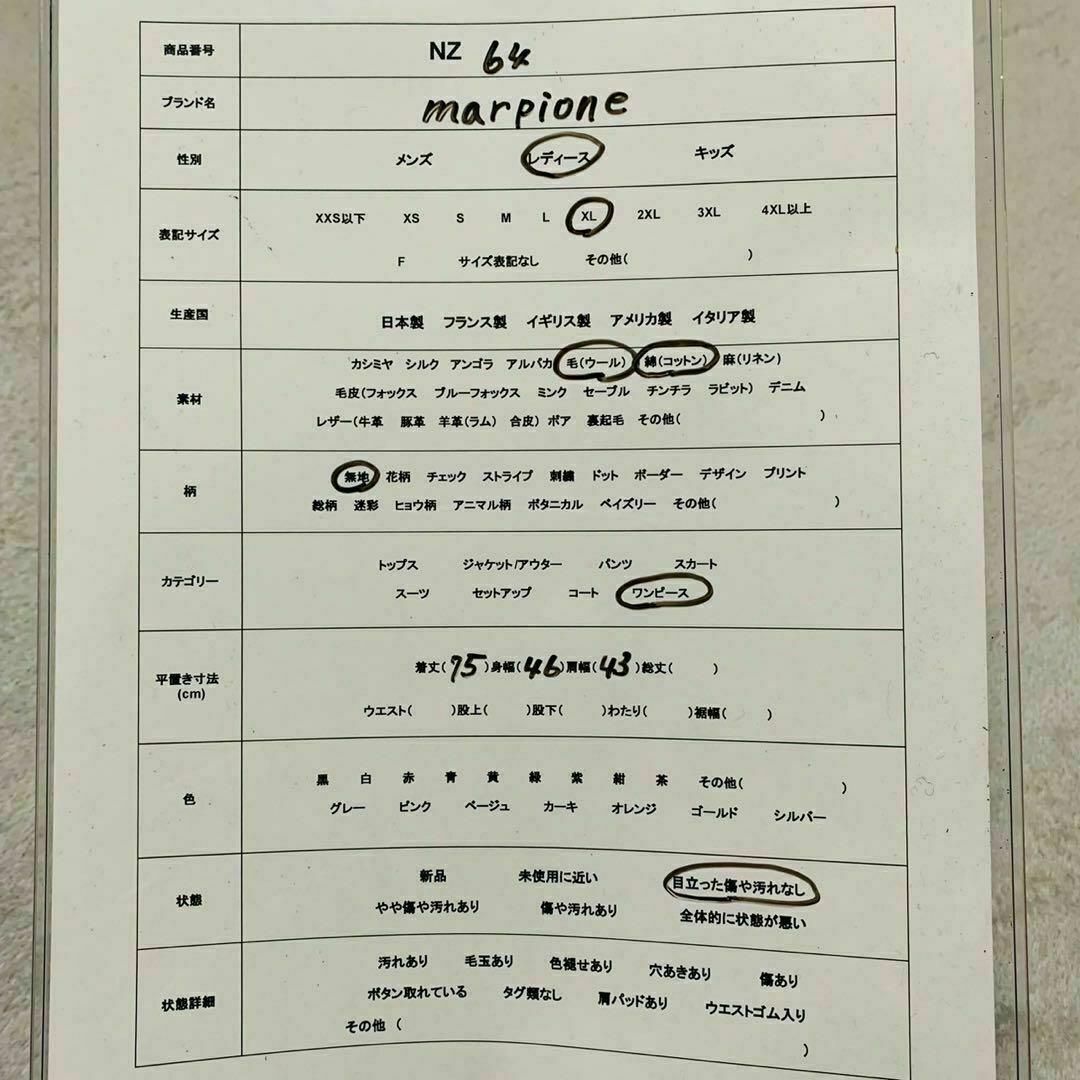 商品番号 NZ 64
ブランド名 marpione
性別 メンズ レディース キッズ
表記サイズ XXS以下 XS S M L XL 2XL 3XL 4XL以上
F サイズ表記なし その他( )
生産国 日本製 フランス製 イギリス製 アメリカ製 イタリア製
素材 カシミヤ シルク アンゴラ アルパカ 毛(ウール) 綿(コットン) 麻(リネン)
毛皮(フォックス ブルーフォックス ミンク セーブル チンチラ ラビット) デニム
レザー(牛革 豚革 羊革(ラム) 合皮) ボア 裏起毛 その他( )
柄 無地 花柄 チェック ストライプ 刺繍 ドット ボーダー デザイン プリント
総柄 迷彩 ヒョウ柄 アニマル柄 ボタニカル ペイズリー その他( )
カテゴリー トップス ジャケット/アウター パンツ スカート
スーツ セットアップ コート ワンピース
平置き寸法 (cm) 着丈(75)身幅(46)肩幅(43)総丈( )
ウエスト( )股上( )股下( )わたり( )裾幅( )
色 黒 白 赤 青 黄 緑 紫 紺 茶 その他( )
グレー ピンク ベージュ カーキ オレンジ ゴールド シルバー
状態 新品 未使用に近い 目立った傷や汚れなし
やや傷や汚れあり 傷や汚れあり 全体的に状態が悪い
状態詳細 汚れあり 毛玉あり 色褪せあり 穴あきあり 傷あり
ボタン取れている タグ類なし 肩パッドあり ウエストゴム入り
その他 ( )